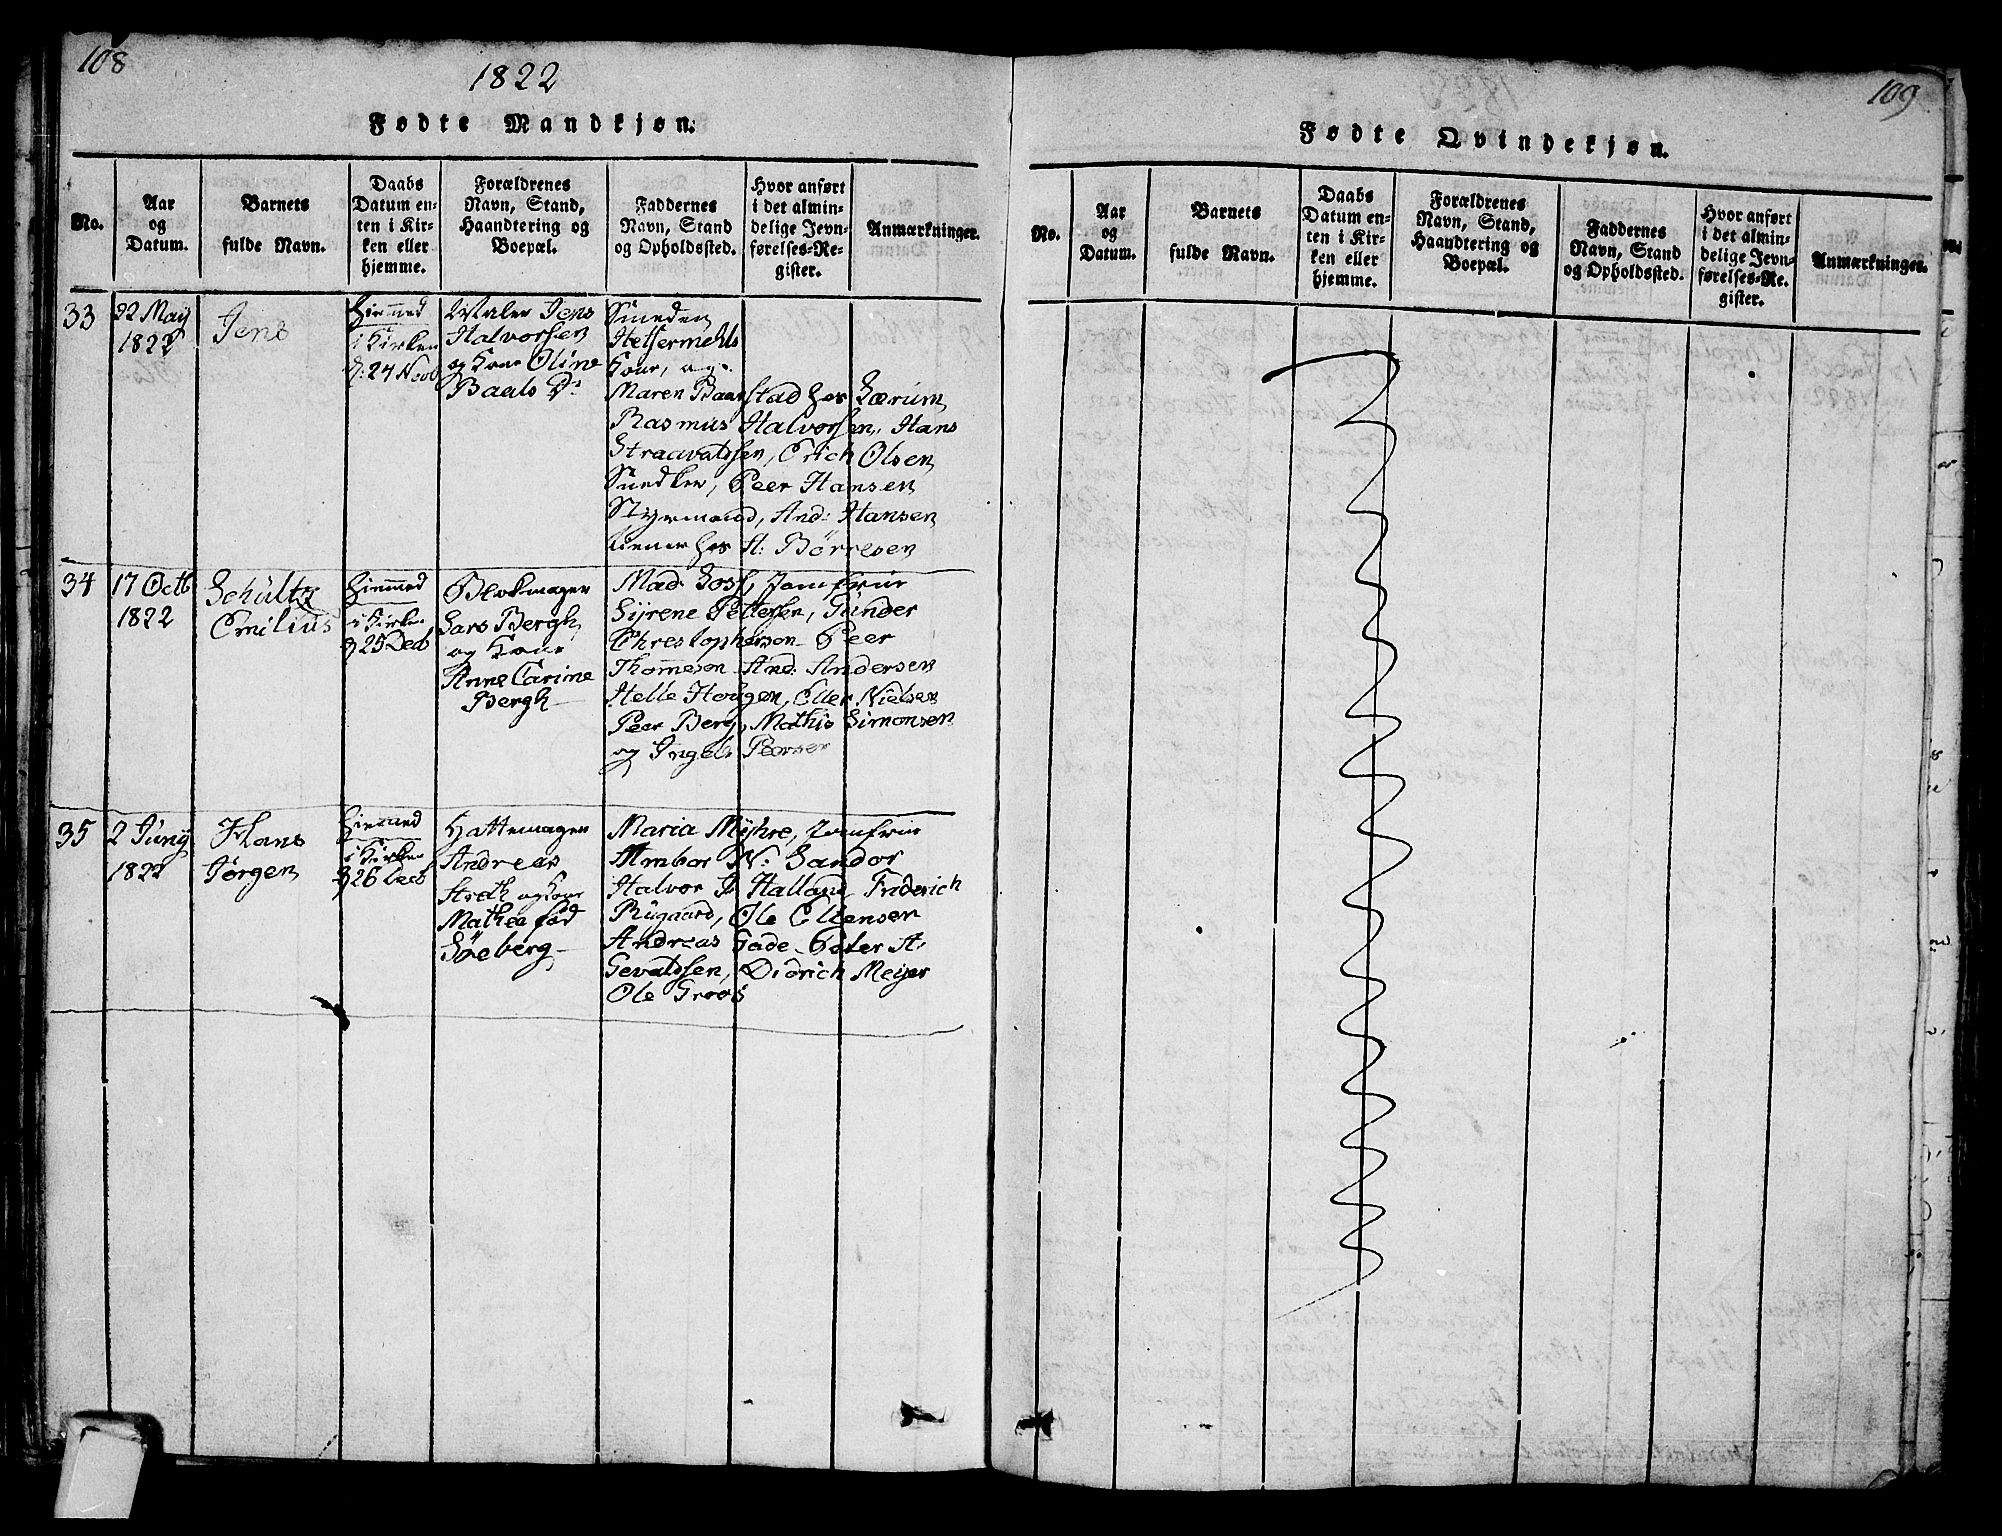 108
1822
Fødte Mandkjøn.
No.
Aar
og
Datum.
Barnets
fulde Navn.
Daabs
Datum en-
ten i Kir-
ken eller
hjemme.
Forældrenes
Navn, Stand,
Haandtering og
Boepæl.
Faddernes
Navn, Stand
og Opholdssted.
Hvor anført
i det almin-
delige Jevn-
førelses-Re-
gister.
Anmærkninger.
33
22 May
1822
Jens
Hiemmed
i Kirken
d: 24 Novb
Maler Jens
Halvorssen
og Kone Oline
Baals D:
Smeden
Kone, og
Maren Baarstad hos Lærum
Rasmus Halvorssen, Hans
Erich Olsen
Snedker, Peer Hansen
Styrmand, And: Hansen
tiener hos A: Börresen
34
17 Octb
1822
Schültz
Emilius
Hiemmed
i Kirken
d 25 Decb
Blokmager
Lars Bergh
og Kone
Anne Carine
Bergh
Mad: Jomfrue
Sijrene Pettersen, Günder
Christophersen Peer
Thommesen And: Andersen
Helle Hougen, Eller Nielsen
Peer Berg, Mathis Simonsen
og Ingeb:
35
2 Junij
1822
Hans
Jørgen
Hiemmed
i Kirken
d 26 Decb
Hattemager
Andreas
og Kone
Mathea fød
Söeberg
Maria Mijhre, Jomfrue
Ambor N: Sandor
Halvor J: Halland Friderich
Rügaard, Ole Ellensen
Andreas Gade Peter A:
Gevaldssen, Didrich Meijer
Ole Groos
109
Fødte Qvindekjøn.
No.
Aar
og
Datum.
Barnets
fulde Navn.
Daabs
Datum en-
ten i Kir-
ken eller
hjemme.
Forældrenes
Navn, Stand,
Haandtering og
Boepæl.
Faddernes
Navn, Stand
og Opholdssted.
Hvor anført
i det almin-
delige Jevn-
førelses-Re-
gister.
Anmærkninger.